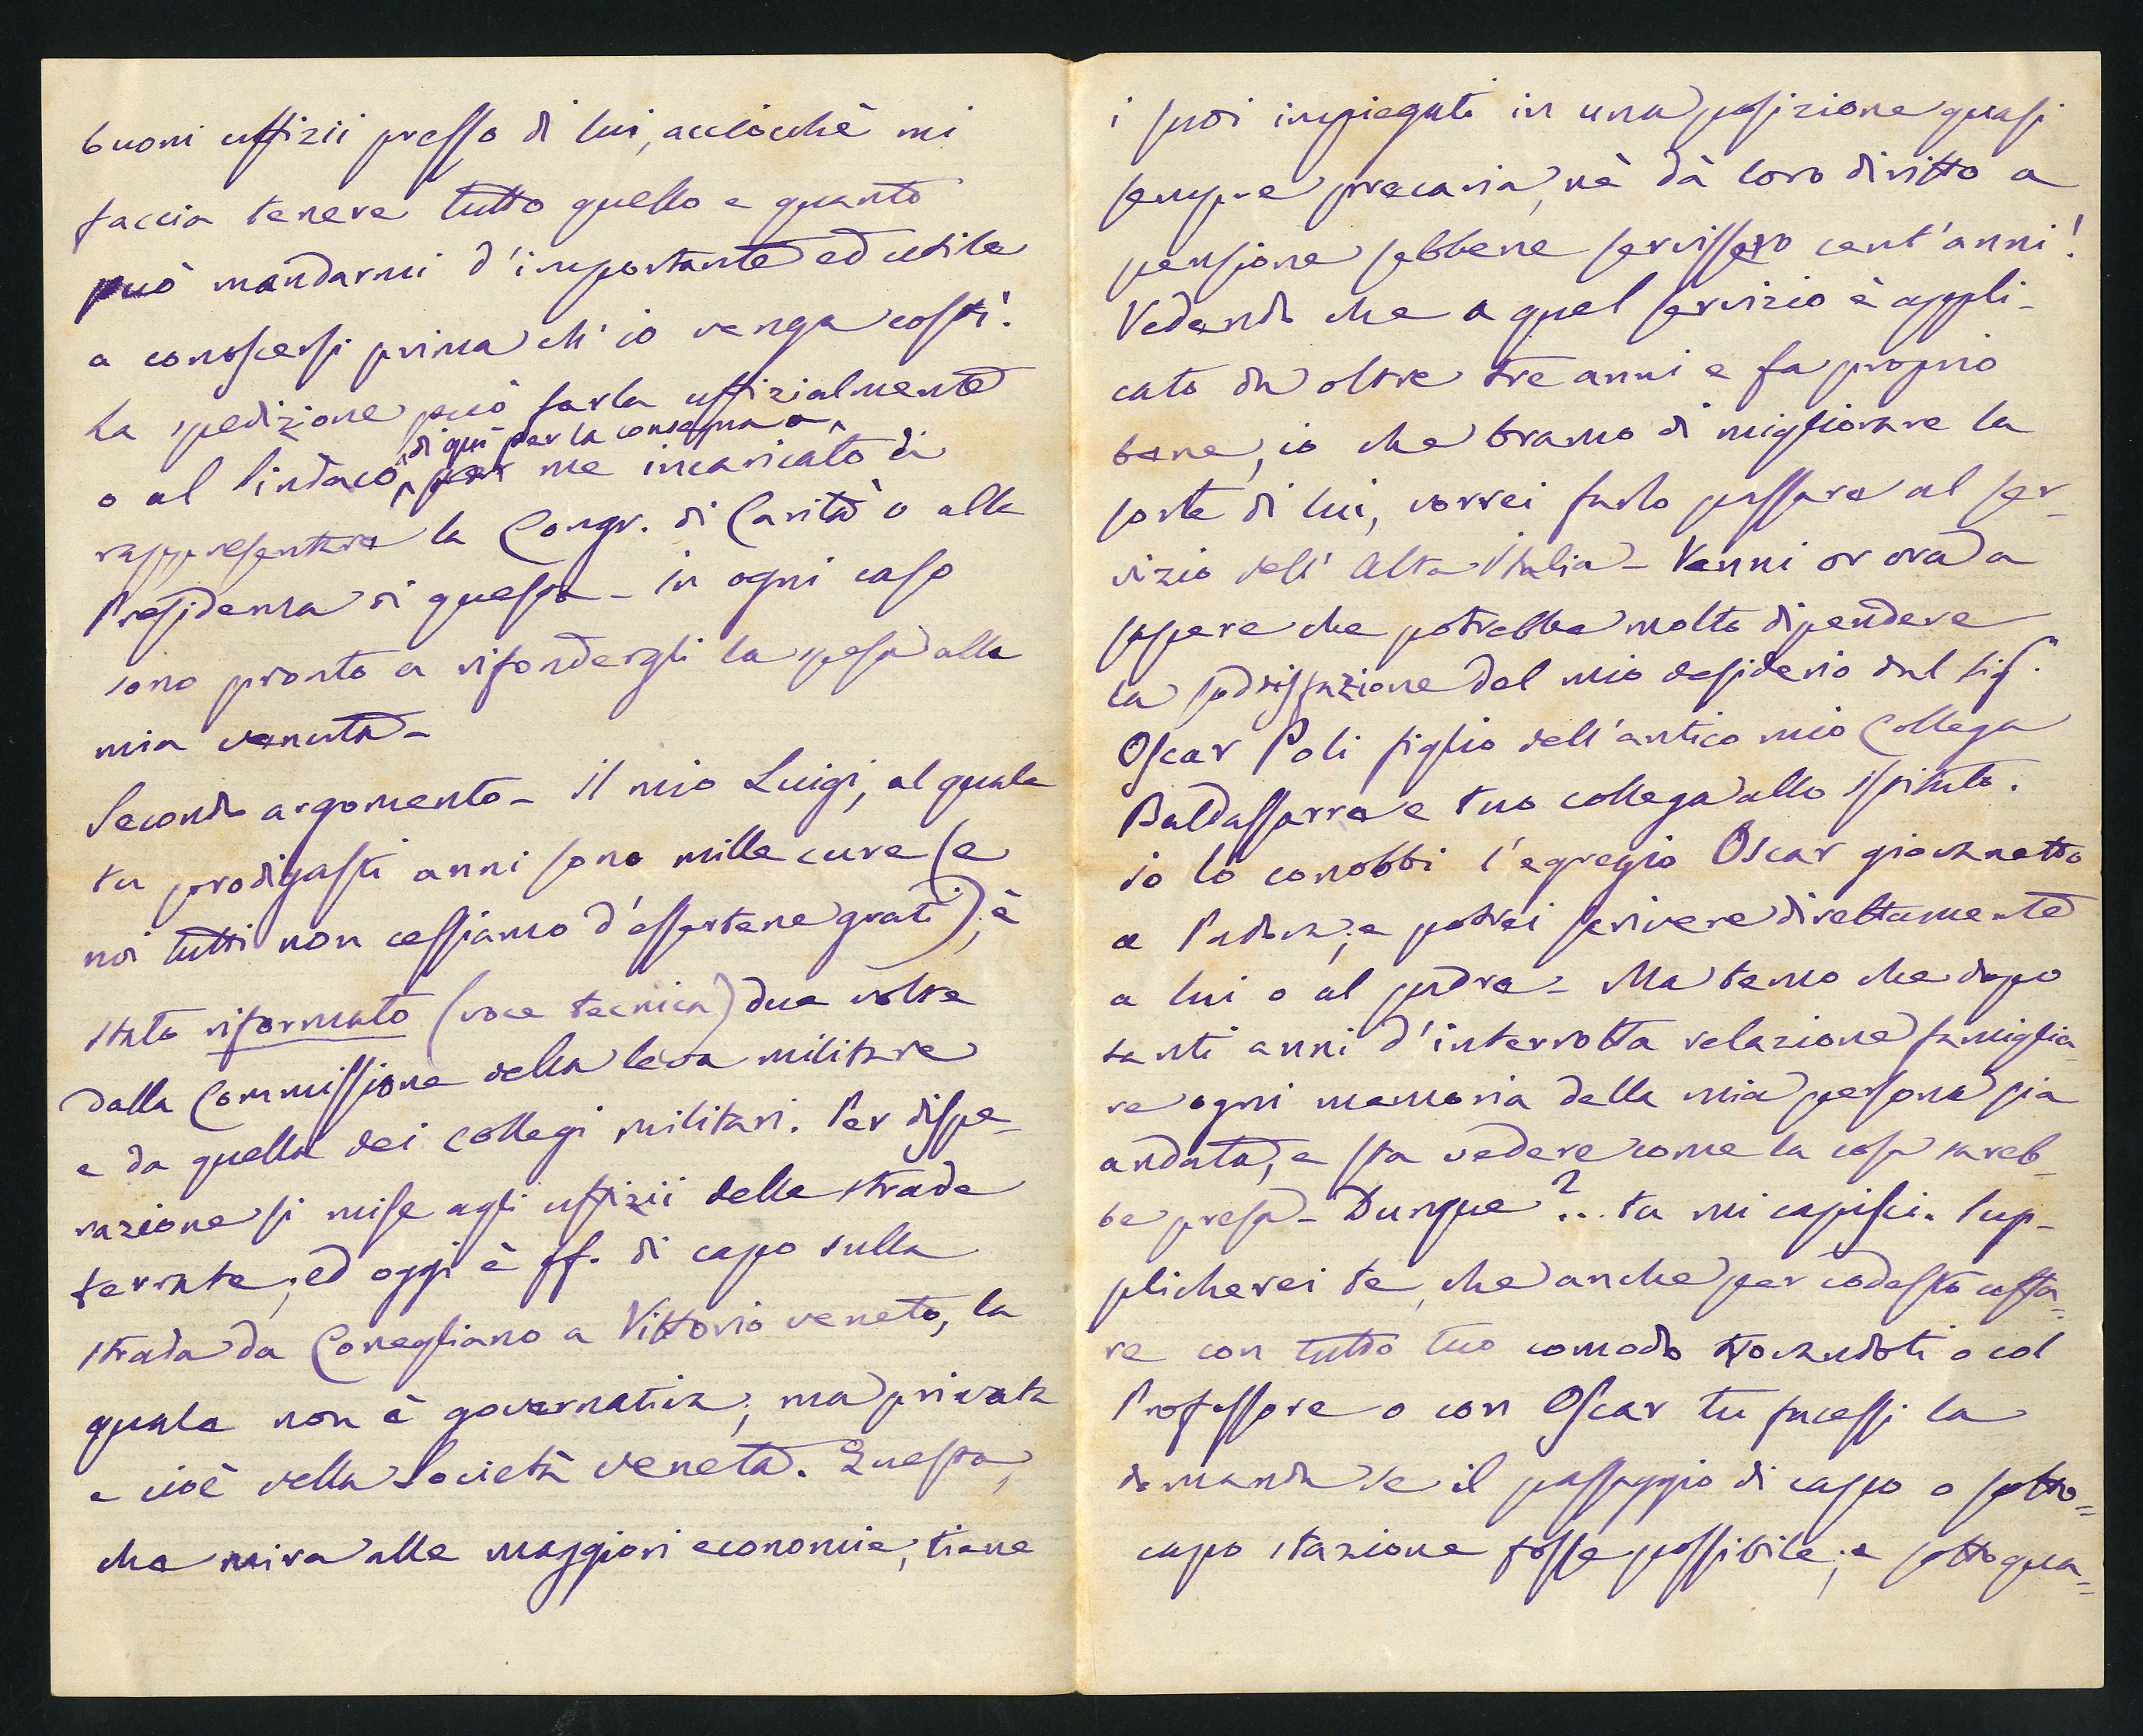 buoni uffizii presso di lui, acciocchè mi
faccia tenere tutto quello e quanto
può mandarmi d'importante ed utile
a conoscersi prima ch'io venga costì.
La spedizione può farla uffizialmente
o al Sindaco di quì per la consegna a me incaricato di
rappresentare la Congr. di Carità o alla
Presidenza di questa - in ogni caso
sono pronto a rifondergli la spesa alla
mia venuta -
Secondo argomento - il mio Luigi, al quale
tu prodigasti anni sono mille cure (e
noi tutti non cessiamo d'essertene grati), è
stato riformato (voce tecnica) due volte
dalla Commissione della leva militare
e da quella dei collegi militari. Per dispe-
razione si mise agli uffizii delle strade
ferrate; ed oggi è ff. di capo sulla
strada da Conegliano a Vittorio veneto, la
quale non è governativa; ma privata
e cioè della Società veneta. Questa,
che mira alle maggiori economie, tiene
i suoi impiegati in una posizione quasi
sempre precaria, nè dà loro diritto a
pensione sebbene servissero cent'anni!
Vedendo che a quel servizio è appli-
cato da oltre tre anni e fa proprio
bene, io che bramo di migliorare la
sorte di lui, vorrei farlo passare al ser-
vizio dell'Alta Italia - Venni or ora a
sapere che potrebbe molto dipendere
la sodisfazione del mio desiderio dal Sig.r
Oscar Poli figlio dell'antico mio Collega
Baldassarre e tuo collega allo Istituto.
io lo conobbi l'egregio Oscar giovanetto
a Padova; e potrei scrivere direttamente
a lui o al padre - Ma temo che dopo
tanti anni d'interrotta relazione famiglia-
re ogni memoria della mia persona sia
andata, e sta vedere come la cosa sareb-
be presa - Dunque?... tu mi capisci. Sup-
plicherei te, che anche per codesto affa-
re con tutto tuo comodo trovandoti o col
Professore o con Oscar tu facessi la
domanda se il passaggio di capo o sotto=
capo stazione fosse possibile; e sotto qua=